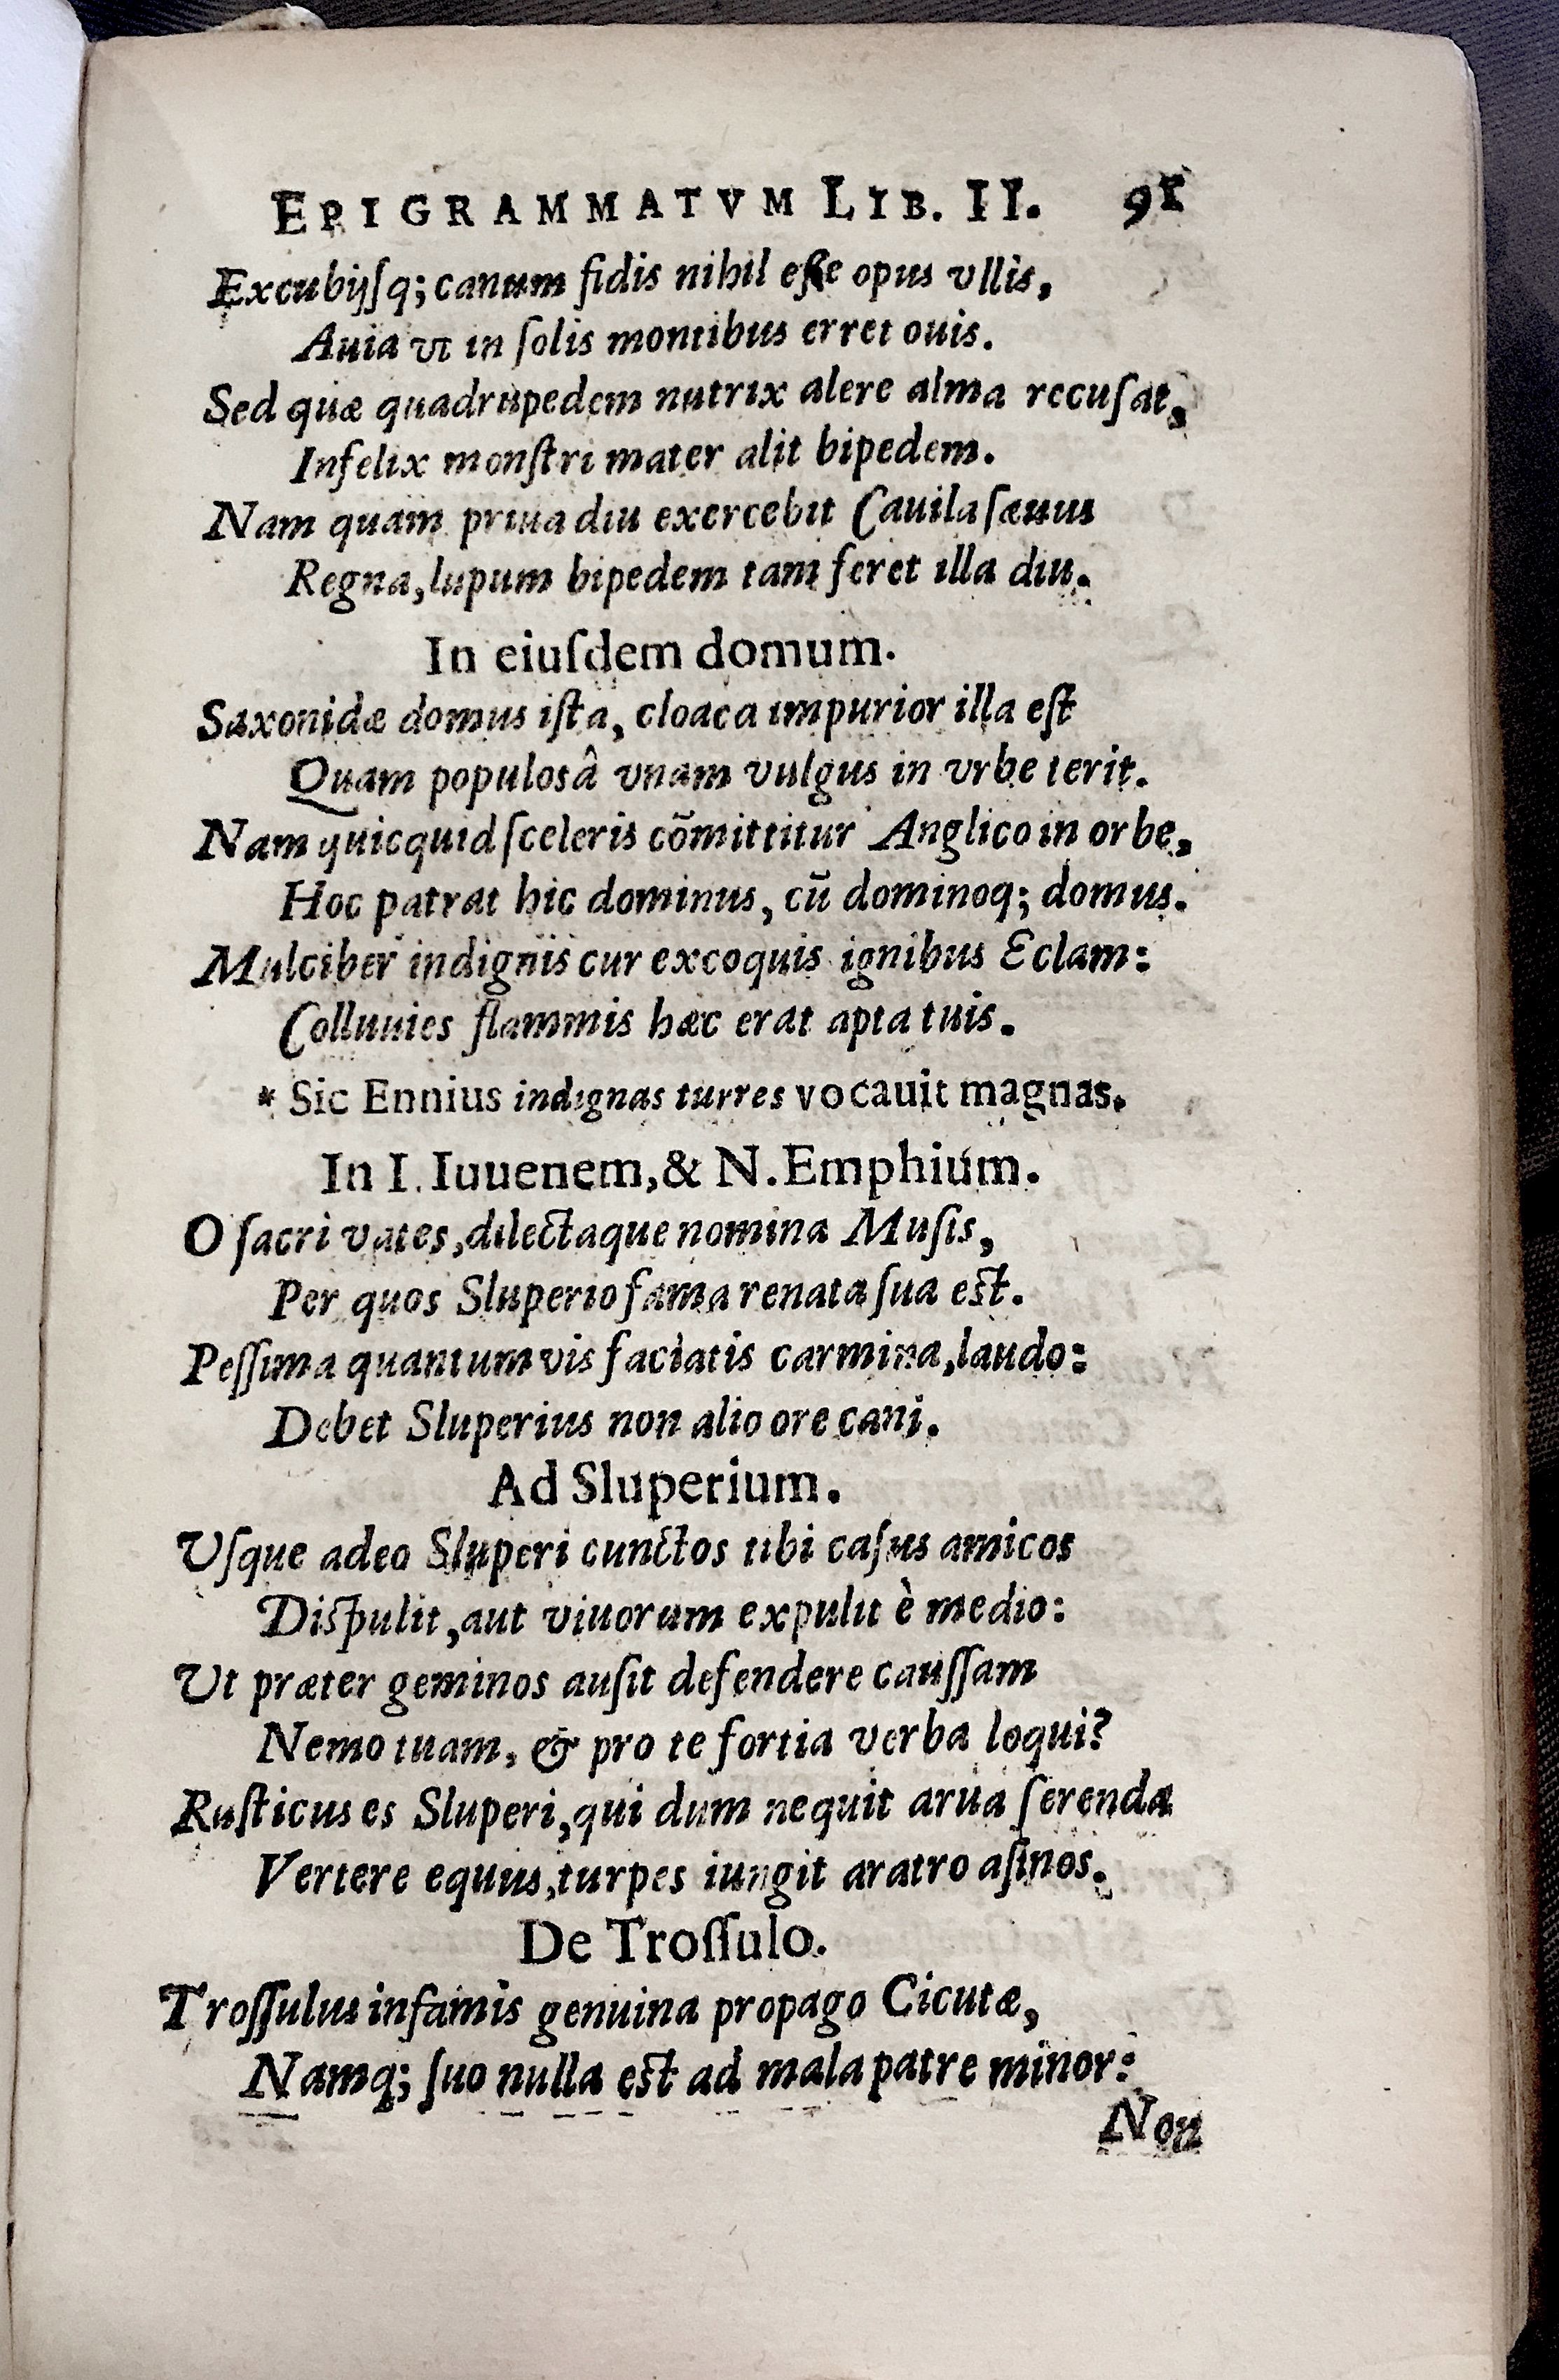 EPIGRAMMATVM LIB. II. 91
Excubijſq; canum fidis nihil eſſe opus vllis,
Auia vt in ſolis montibus erret ouis.
Sed quæ quadrupedem nutrix alere alma recuſat,
Infelix monſtri mater alit bipedem.
Nam quam priua diu exercebit Cauila ſæuus
Regna, lupum bipedem tam feret illa diu.
In eiuſdem domum.
Saxonidæ domus iſta, cloaca impurior illa eſt
Quam populosâ vnam vulgus in vrbe terit.
Nam quicquid ſceleris cõmittitur Anglico in orbe,
Hoc patrat hic dominus, cū dominoq; domus.
Mulciber indignis cur excoquis ignibus Eclam:
Colluuies flammis hæc erat apta tuis.
* Sic Ennius indignas turres vocauit magnas.
In I. Iuuenem, & N. Emphium.
O ſacri vates, dilectaque nomina Muſis,
Per quos Sluperio fama renata ſua est.
Peſſima quantumvis faciatis carmina, laudo:
Debet Sluperius non alio ore cani.
Ad Sluperium.
Uſque adeo Sluperi cunctos tibi caſus amicos
Dispulit, aut viuorum expulit è medio:
Ut præter geminos auſit defendere cauſſam
Nemo tuam, & pro te fortia verba loqui?
Ruſticus es Sluperi, qui dum nequit arua ſerenda
Vertere equus, turpes iungit aratro aſinos.
De Troſſulo.
Troſſulus infamis genuina propago Cicutæ,
Namq; ſuo nulla est ad mala patre minor:
Non